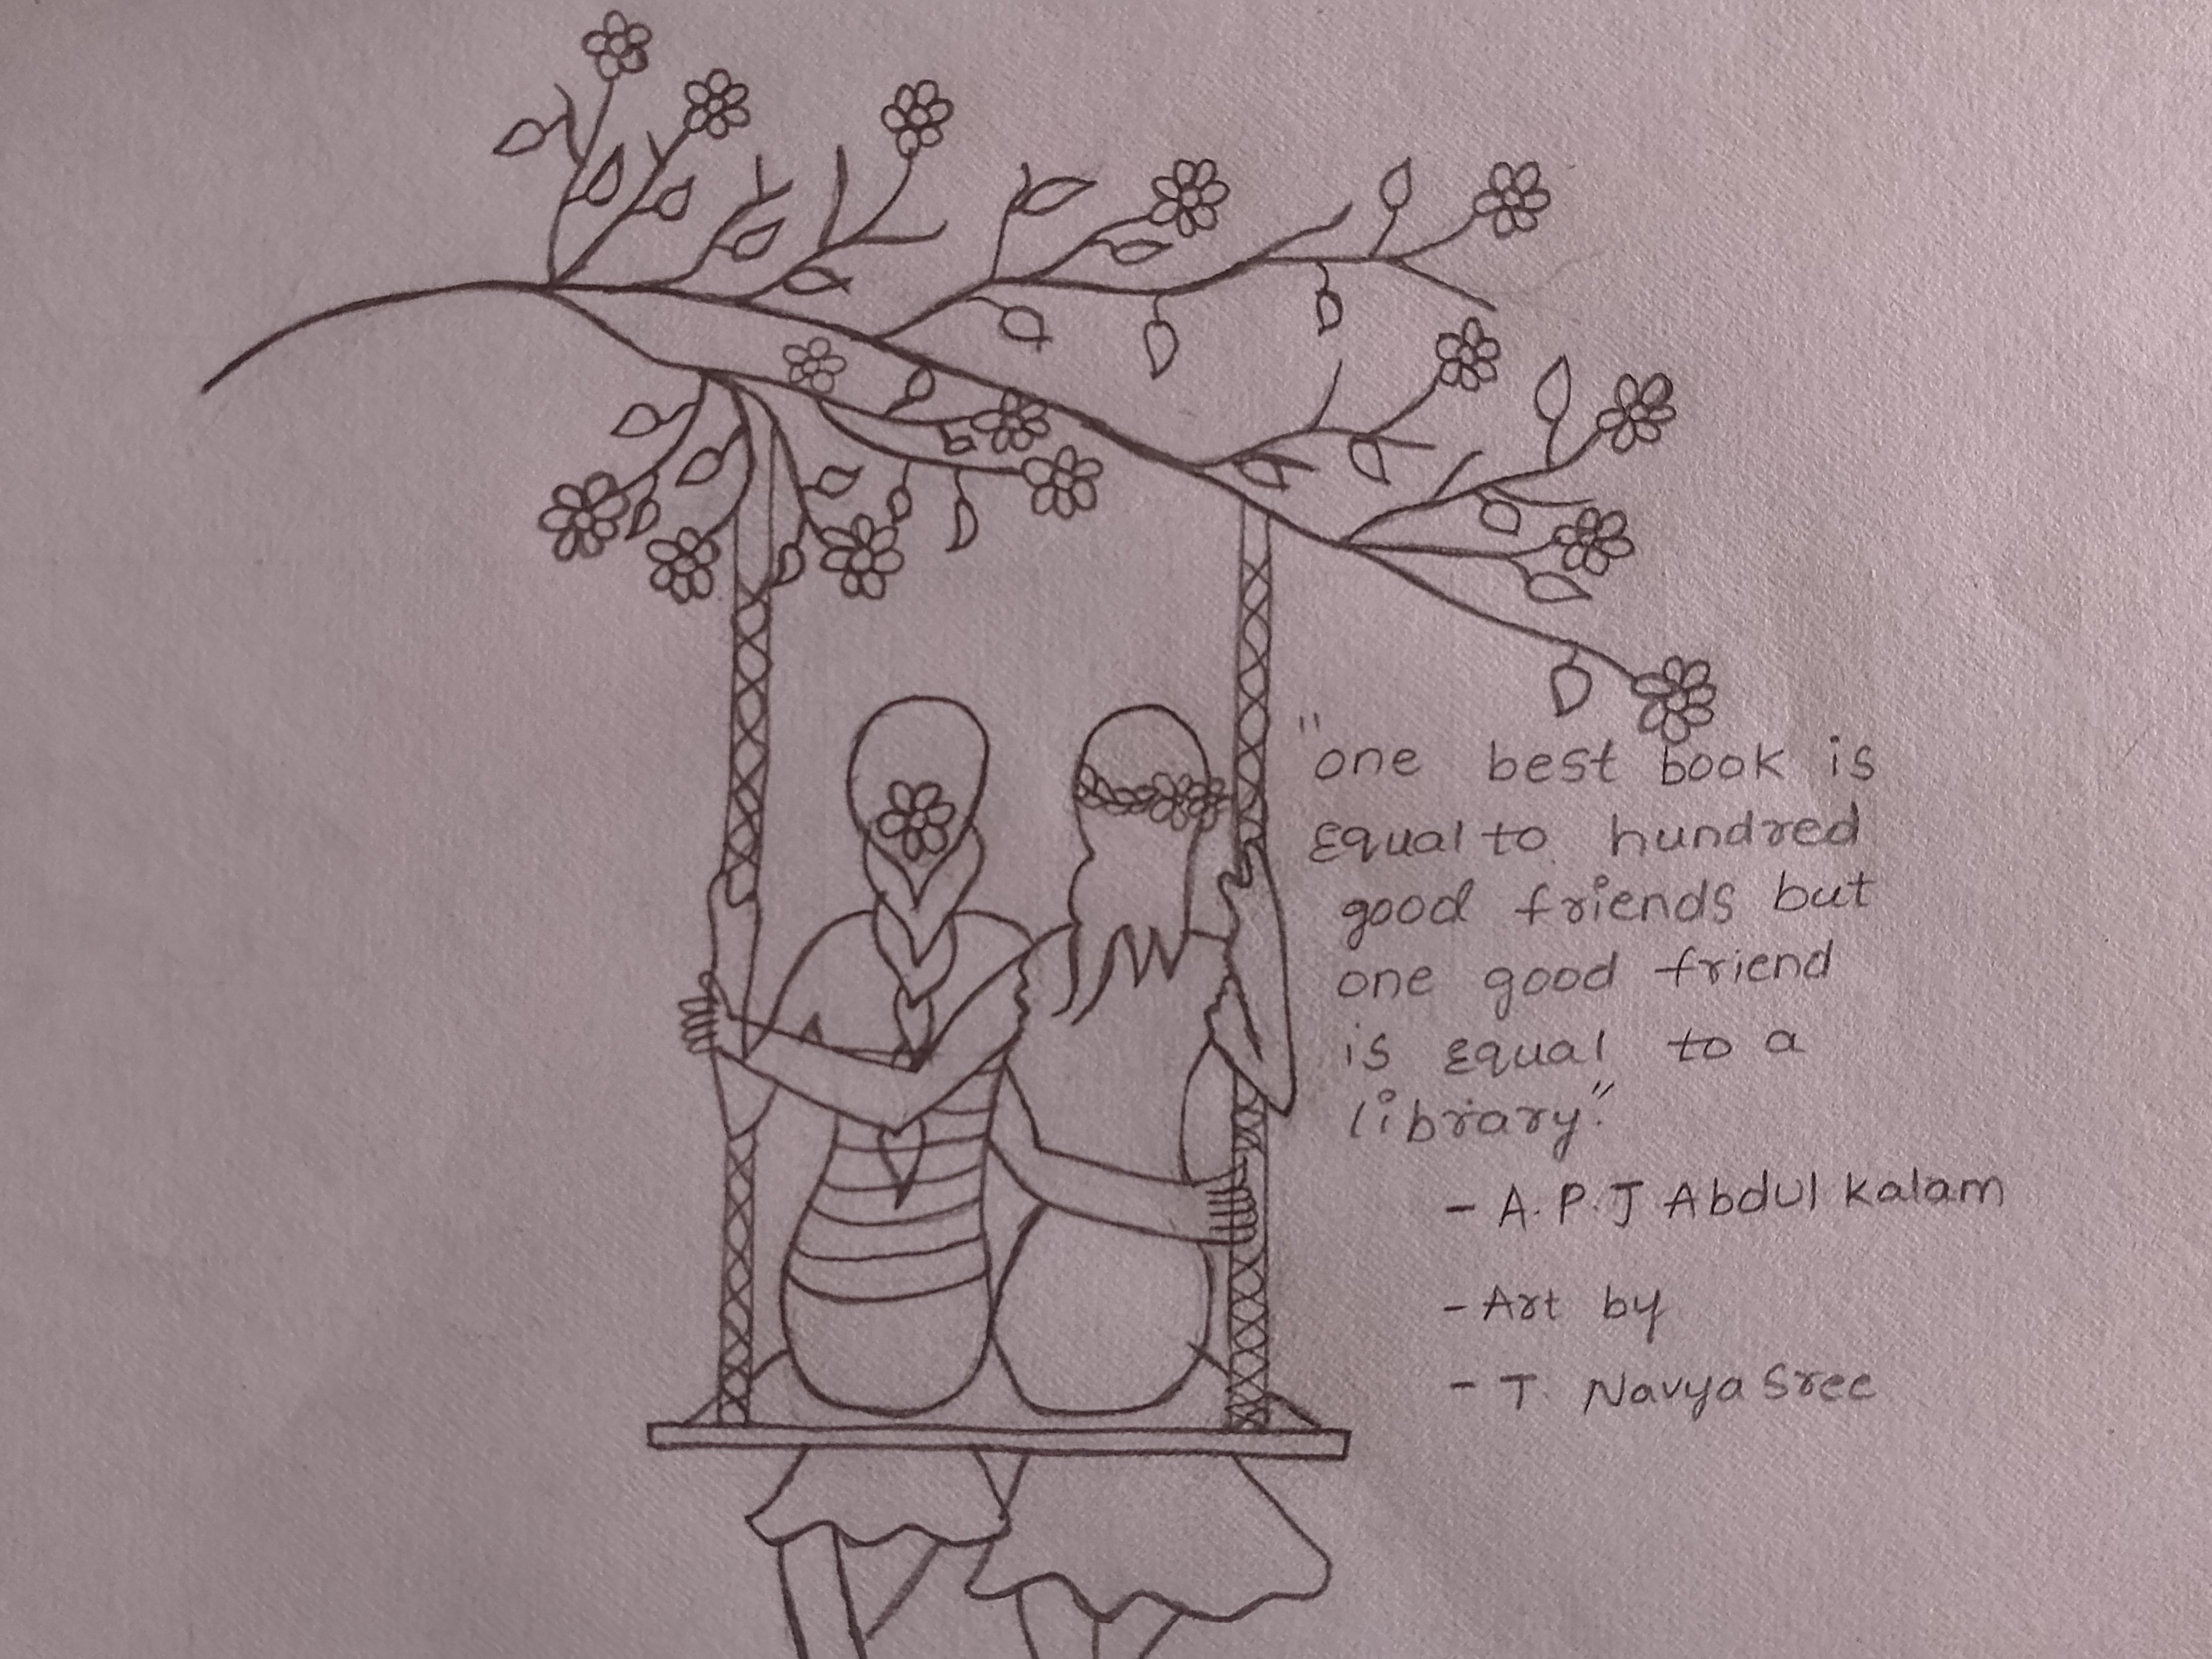 "one best book is
Equal to hundred
good friends but
one good friend
is Equal to a
library."
- A.P.J Abdul Kalam
- Art by
- T. Navya Sree